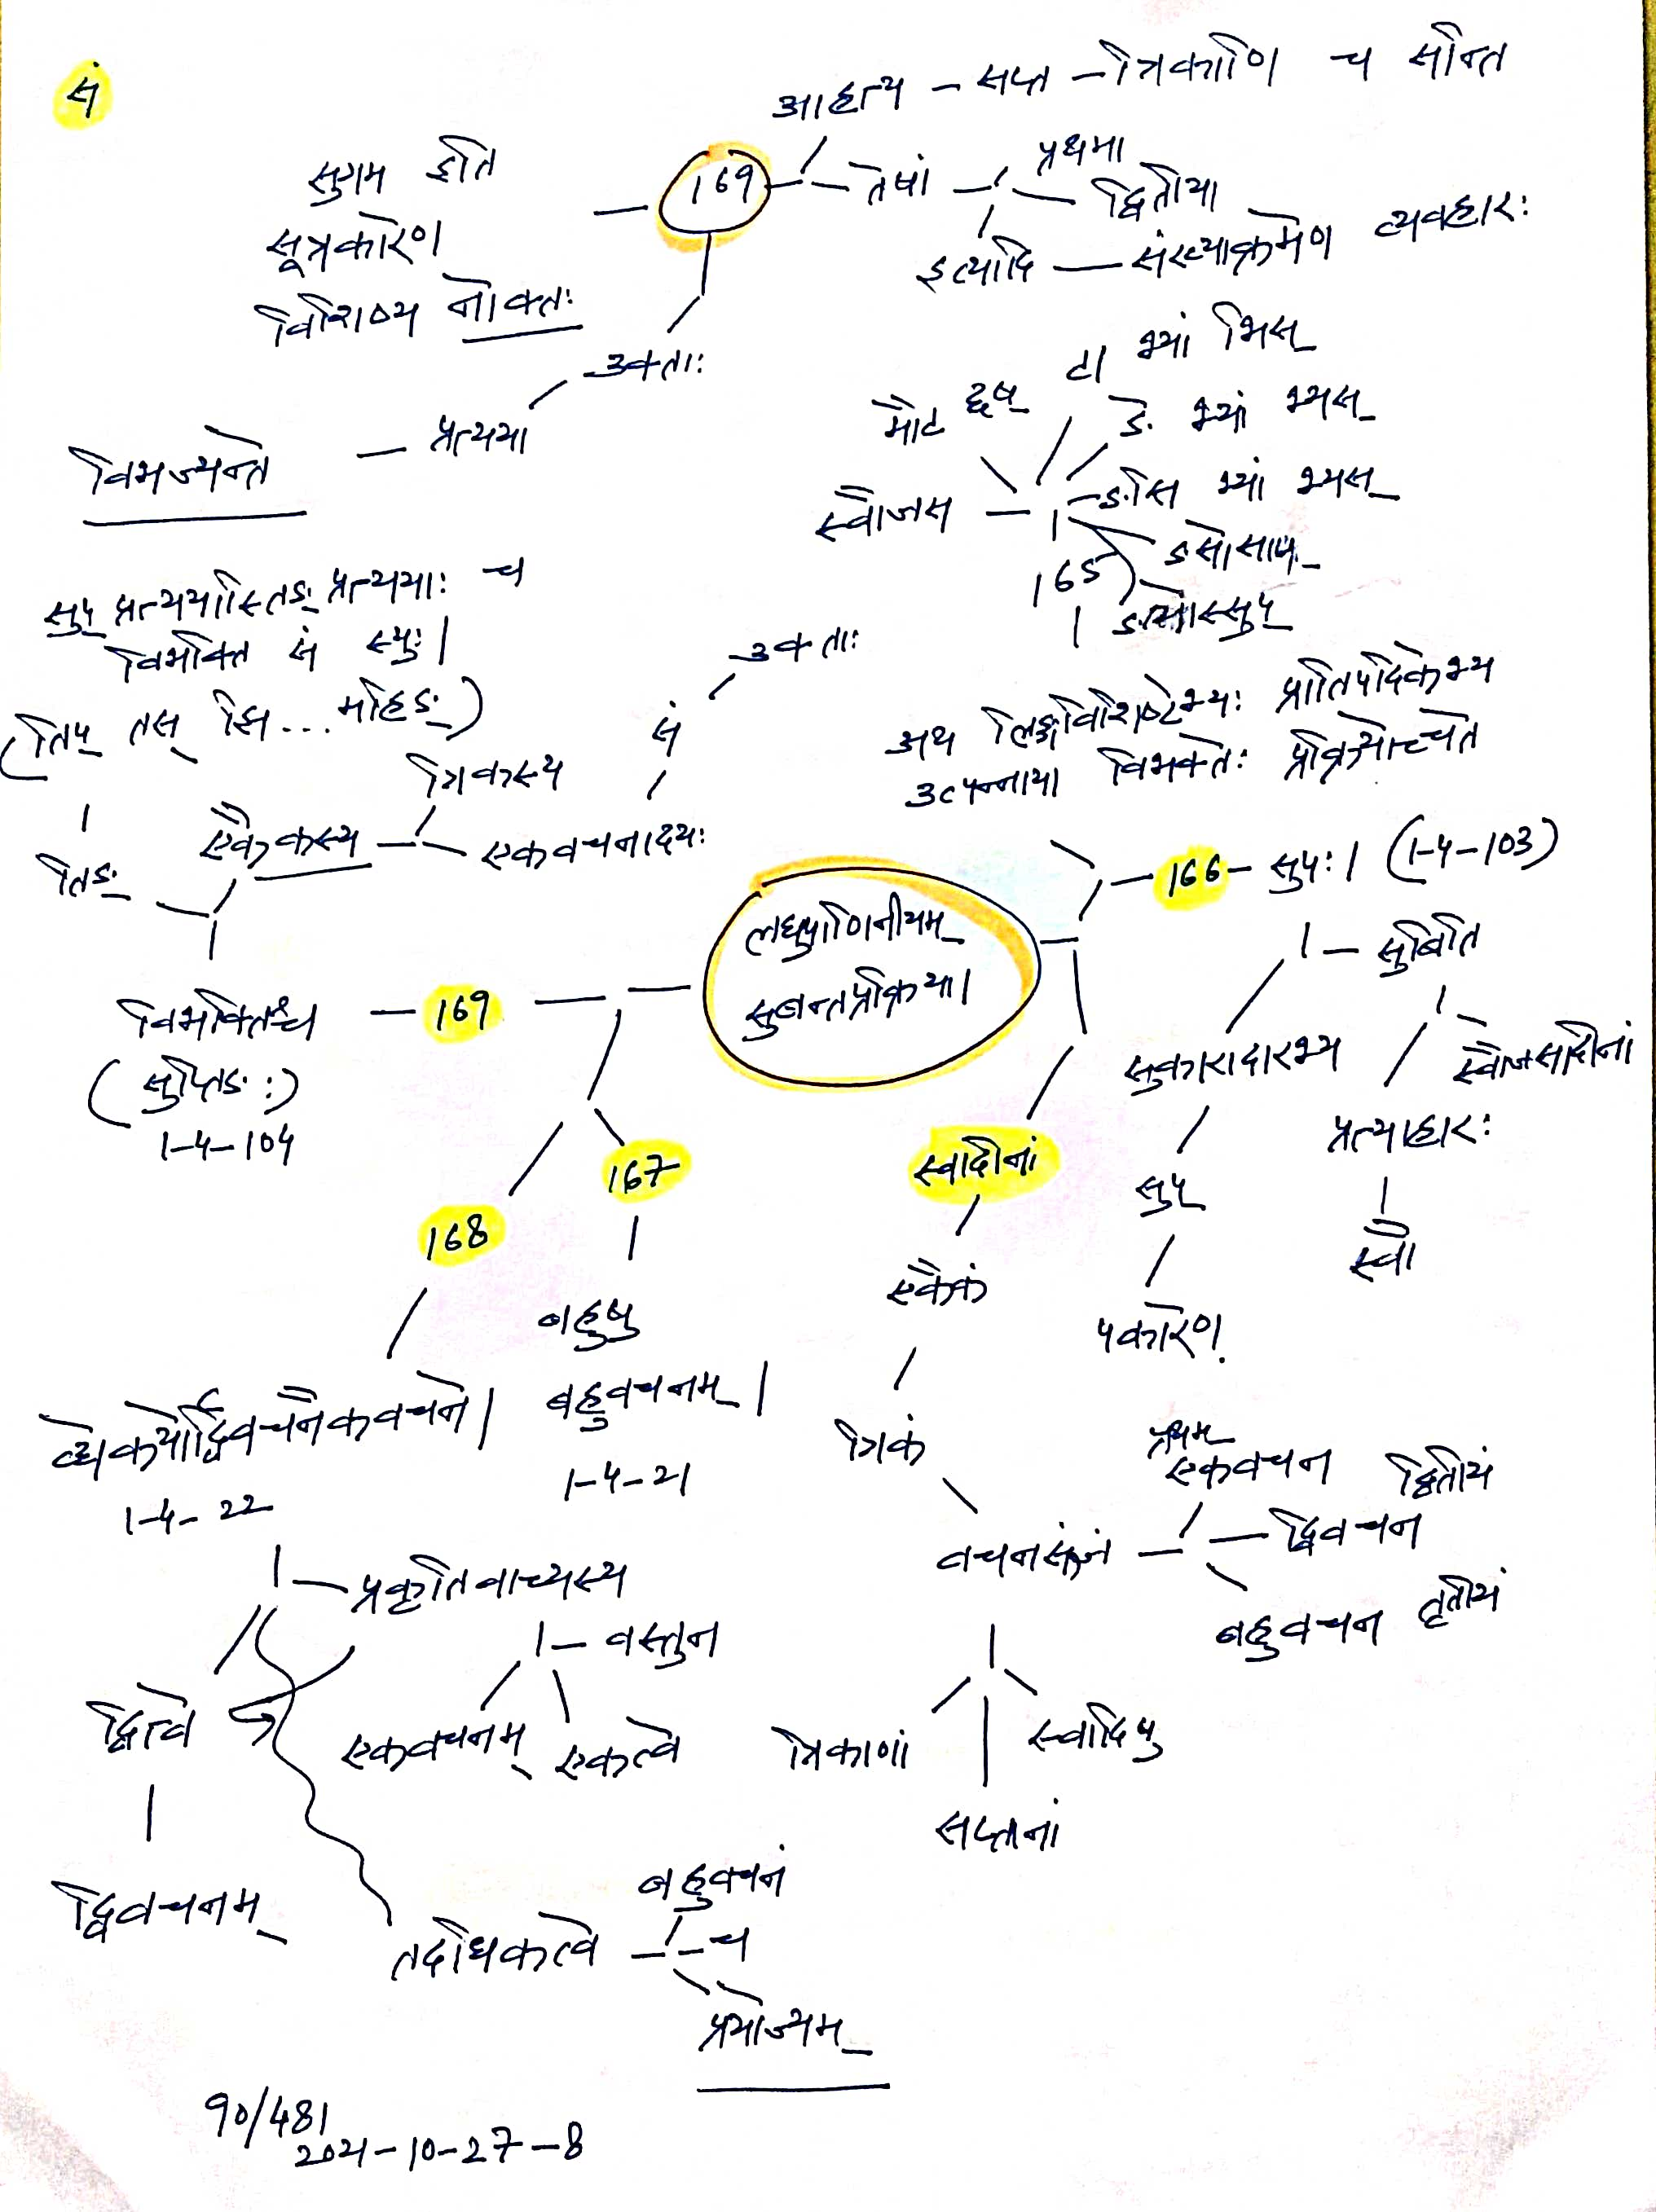 सं
आहत्य - सप्त - त्रिकाणि च सन्ति
169 - तेषां - प्रथमा
द्वितीया
इत्यादि - संख्याक्रमेण व्यवहारः
सुगम इति
सूत्रकारेण
विशिष्य नोक्तः
उक्ताः
प्रत्यया
विभज्यन्ते
टा भ्यां भिस्
मौट् छष्
ङे भ्यां भ्यस्
स्वौजस
ङसि भ्यां भ्यस्
ङसोसाम्
165
ङ्योस्सुप्
सुप् प्रत्ययास्तिङ् प्रत्ययाः च
विभक्ति सं स्युः।
(तिप् तस् झि... महिङ्)
उक्ताः
सं
त्रिकस्य
एकैकस्य
एकवचनादयः
तिङ्
अथ लिङ्गविशिष्टेभ्यः प्रातिपदिकेभ्य
उत्पन्नाया विभक्तेः प्रक्रियोच्यते
166 - सुपः। (1-4-103)
सुबिति
लघुपाणिनीयम्
सुबन्तप्रक्रिया।
विभक्तिश्च - 169
(सुप्तिङः)
1-4-104
सुकारादारभ्य
स्वौजसादीनां
प्रत्याहारः
सुप्
स्वौ
पकारेण
167
168
स्वादीनां
एकैकं
त्रिकं
बहुषु
बहुवचनम्।
1-4-21
द्व्येकयोर्द्विवचनैकवचने।
1-4-22
प्रथम
एकवचन द्वितीयं
वचनसंज्ञं - द्विवचन
बहुवचन तृतीयं
प्रकृतिवाच्यस्य
वस्तुन
द्वित्वे
एकवचनम् एकत्वे
त्रिकाणां
स्वादिषु
सप्तानां
द्विवचनम्
बहुवचनं
तदधिकत्वे - च
प्रयोज्यम्
90/481
2021-10-27-8